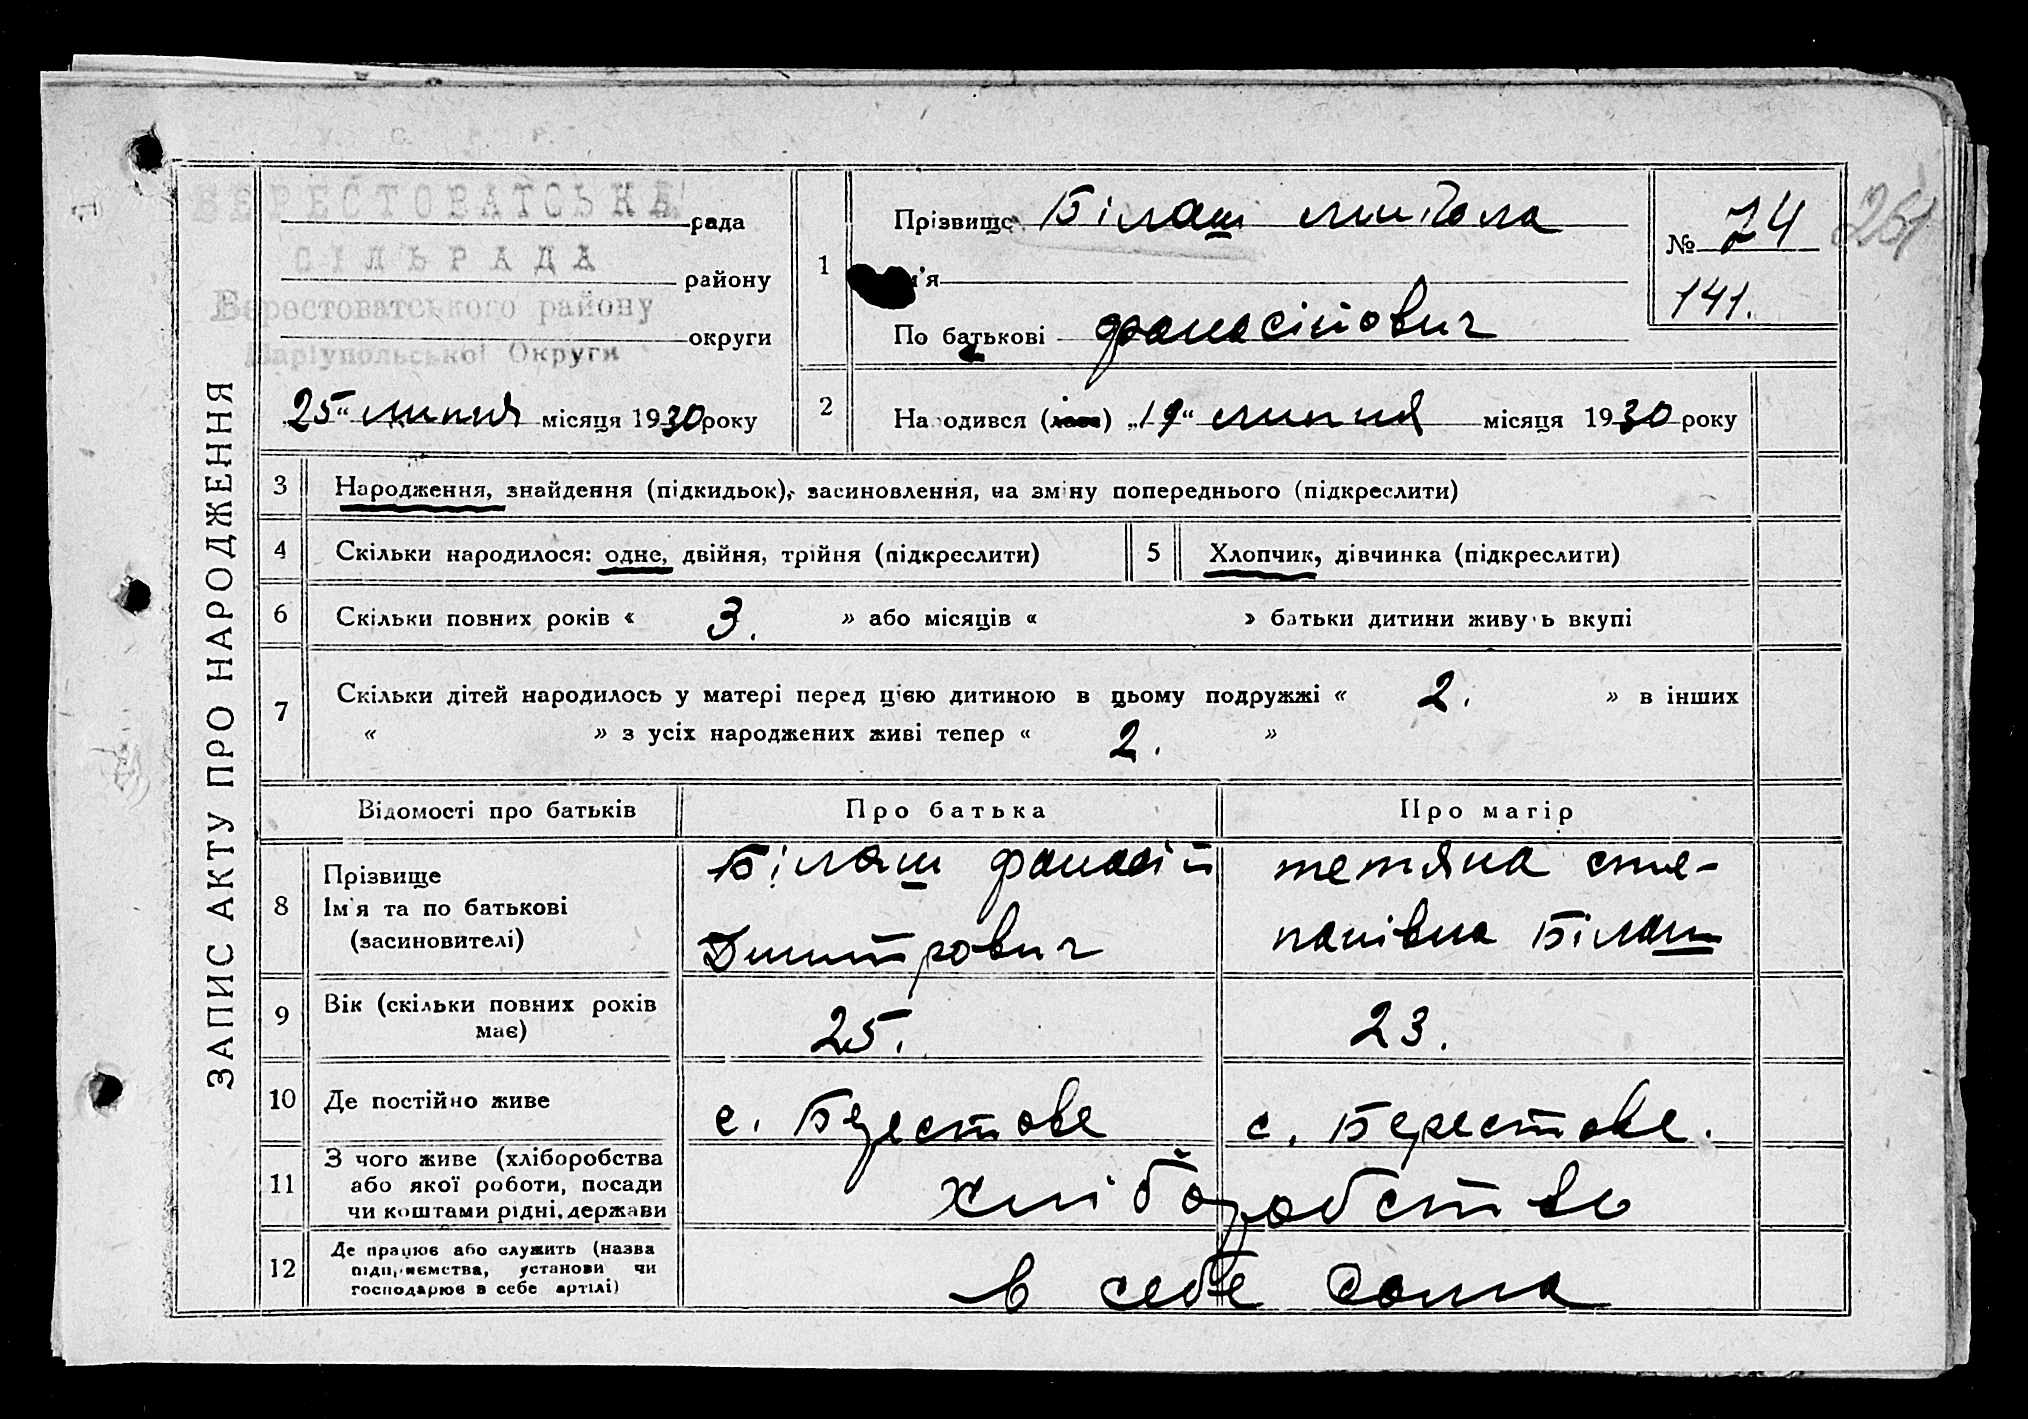 У. С. Р. Р.
БЕРЕСТОВАТСЬКА рада
СІЛЬРАДА району
Берестоватського району
округи
Маріупольської Округи
„25“ липня місяця 1930 року
ЗАПИС АКТУ ПРО НАРОДЖЕННЯ
1 Прізвище Білаш Микола
Ім'я
По батькові Фанасійович
№ 74
141.
261
2 Народився (лась) „19“ липня місяця 1930 року
3 Народження, знайдення (підкидьок), засиновлення, на зміну попереднього (підкреслити)
4 Скільки народилося: одне, двійня, трійня (підкреслити) 5 Хлопчик, дівчинка (підкреслити)
6 Скільки повних років « 3. » або місяців « » батьки дитини живуть вкупі
7 Скільки дітей народилось у матері перед цією дитиною в цьому подружжі « 2. » в інших
« » з усіх народжених живі тепер « 2. »
Відомості про батьків Про батька Про матір
8 Прізвище Ім'я та по батькові (засиновителі)
Білаш Фанасій
Дмитрович
тетяна сте-
панівна Білаш
9 Вік (скільки повних років має) 25. 23.
10 Де постійно живе с. Берестове с. Берестове.
11 З чого живе (хліборобства
або якої роботи, посади
чи коштами рідні, держави
хліборобство
12 Де працює або служить (назва
підприємства, установи чи
господарює в себе артілі)
в себе дома